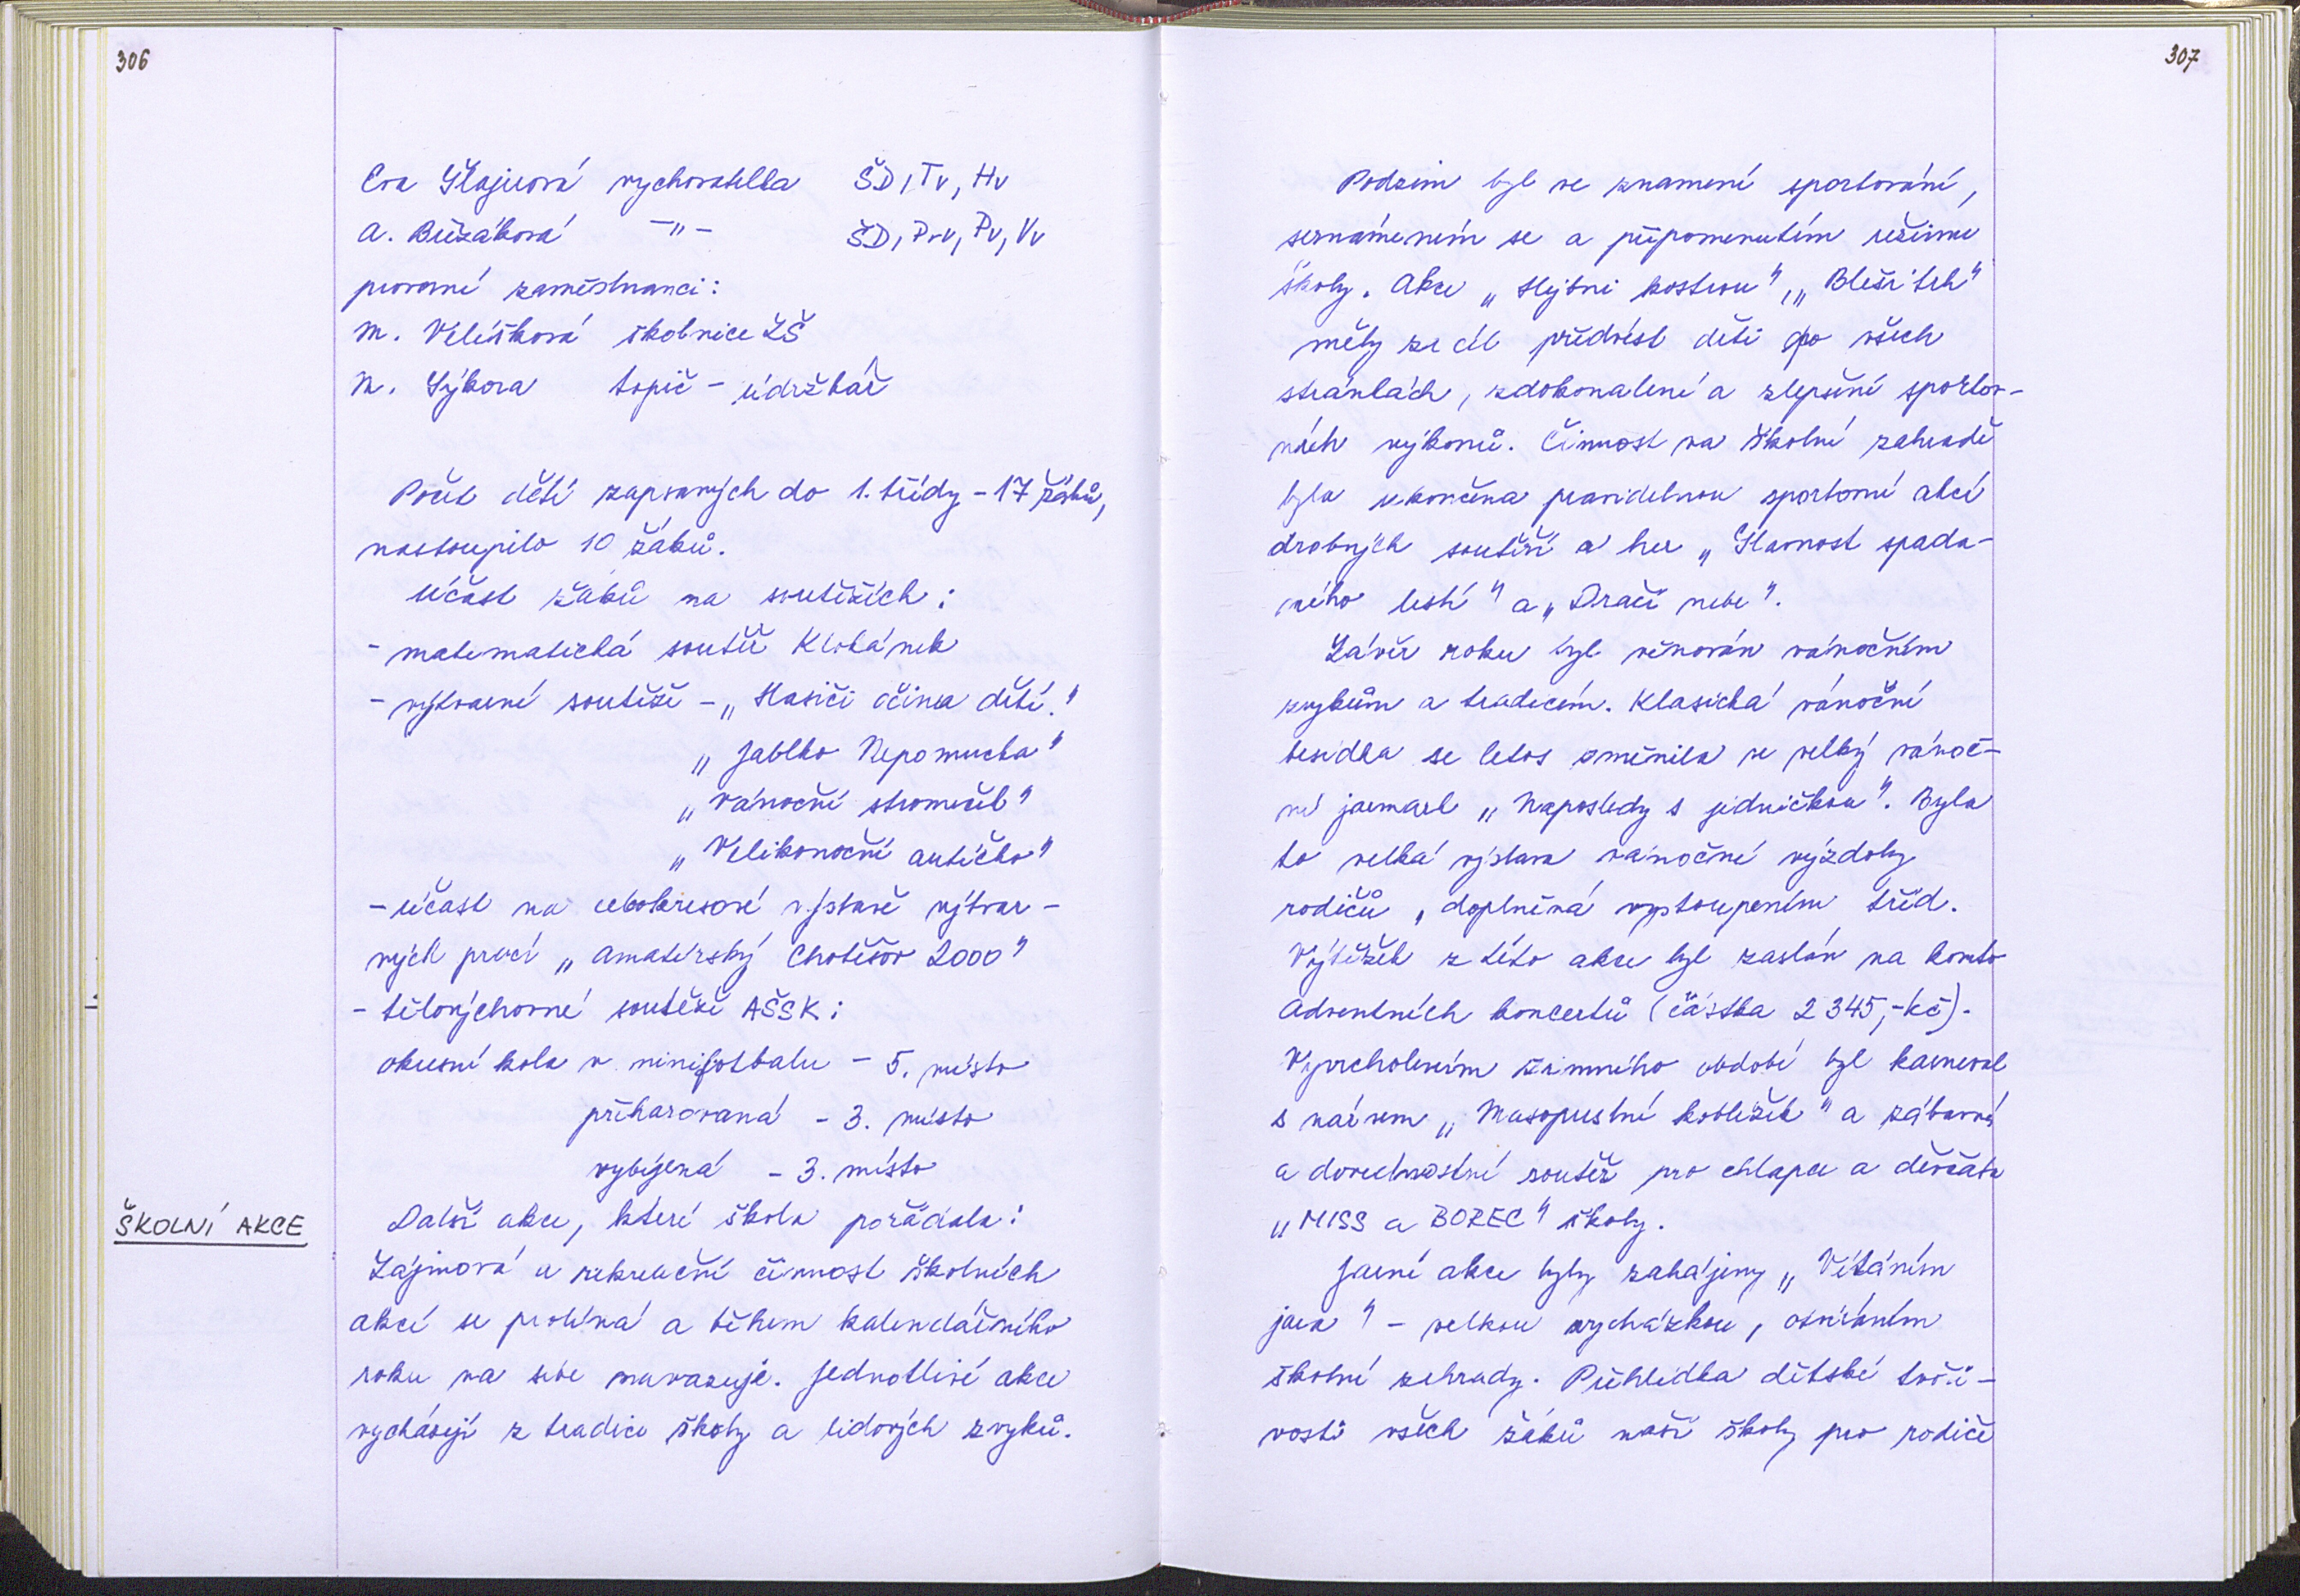 306
Eva Štajerová vychovatelka ŠD, Tv, Hv
A. Bůžáková -"- ŠD, Prv, Pv, Vv
provozní zaměstnanci:
M. Velíšková školnice ZŠ
M. Sýkora topič - údržbář
Počet dětí zapsaných do 1. třídy - 17 žáků,
nastoupilo 10 žáků.
Účast žáků na soutěžích:
- matematická soutěž Klokánek
- výtvarné soutěže - „Hasiči očima dětí."
„Jablko Nepomucka"
„Vánoční stromeček"
„Velikonoční autíčko"
- účast na celookresové výstavě výtvar-
ných prací „Amatérský Chotěšov 2000"
- tělovýchovné soutěže AŠSK:
okresní kola v minifotbalu - 5. místo
přehazovaná - 3. místo
vybíjená - 3. místo
ŠKOLNÍ AKCE
Další akce, které škola pořádala:
Zájmová a rekreační činnost školních
akcí se prolíná a během kalendářního
roku na sebe navazuje. Jednotlivé akce
vycházejí z tradice školy a lidových zvyků.
307
Podzim byl ve znamení sportování,
seznámením se a připomenutím režimu
školy. Akce „Hejbni kostrou", „Bleší trh"
měly za cíl předvést děti po všech
stránkách, zdokonalení a zlepšení sportov-
ních výkonů. Činnost na školní zahradě
byla ukončena pravidelnou sportovní akcí
drobných soutěží a her „Slavnost spada-
ného listí" a „Dračí nebe".
Závěr roku byl věnován vánočním
zvykům a tradicím. Klasická vánoční
besídka se letos změnila ve velký vánoč-
ní jarmark „Naposledy s jedničkou". Byla
to velká výstava vánoční výzdoby
rodičů, doplněná vystoupením tříd.
Výtěžek z této akce byl zaslán na konto
Adventních koncertů (částka 2 345,- Kč).
Vyvrcholením zimního období byl karneval
s názvem „Masopustní koblížek" a zábavná
a dovednostní soutěž pro chlapce a děvčata
„MISS a BOREC" školy.
Jarní akce byly zahájeny „Vítáním
jara" - velkou vycházkou, otvíráním
školní zahrady. Přehlídka dětské tvoři-
vosti všech žáků naší školy pro rodiče